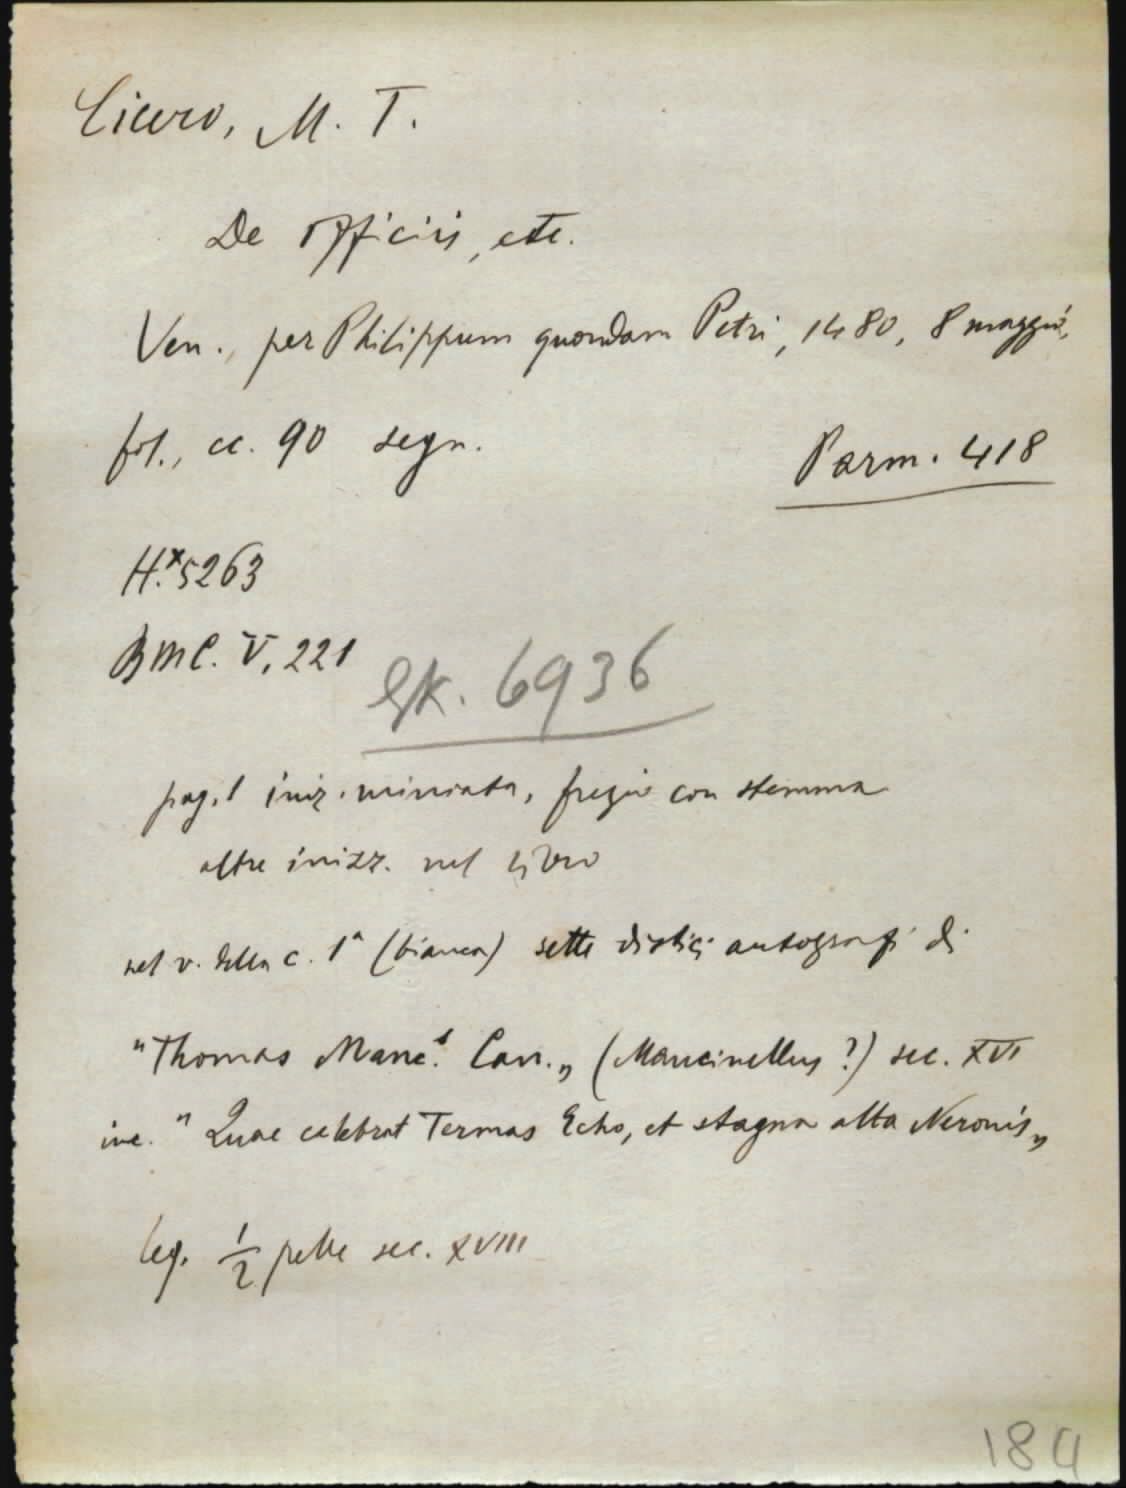 Cicero, M. T.
De officiis, etc.
Ven., per Philippum quondam Petri, 1480, 8 maggio,
fol., cc. 90 segn.
Parm. 418
H.x5263
BMC. V, 221
GK. 6936
pag. 1 iniz. miniata, fregio con stemma
altre inizz. nel libro
nel v. della c. 1a (bianca) sette distici autografi di
"Thomas Manc. Can.„ (Mancinellus?) sec. XVI
inc. "Quae celebrat Termas Echo, et stagna alta Neronis„
leg. 1/2 pelle sec. XVIII
184